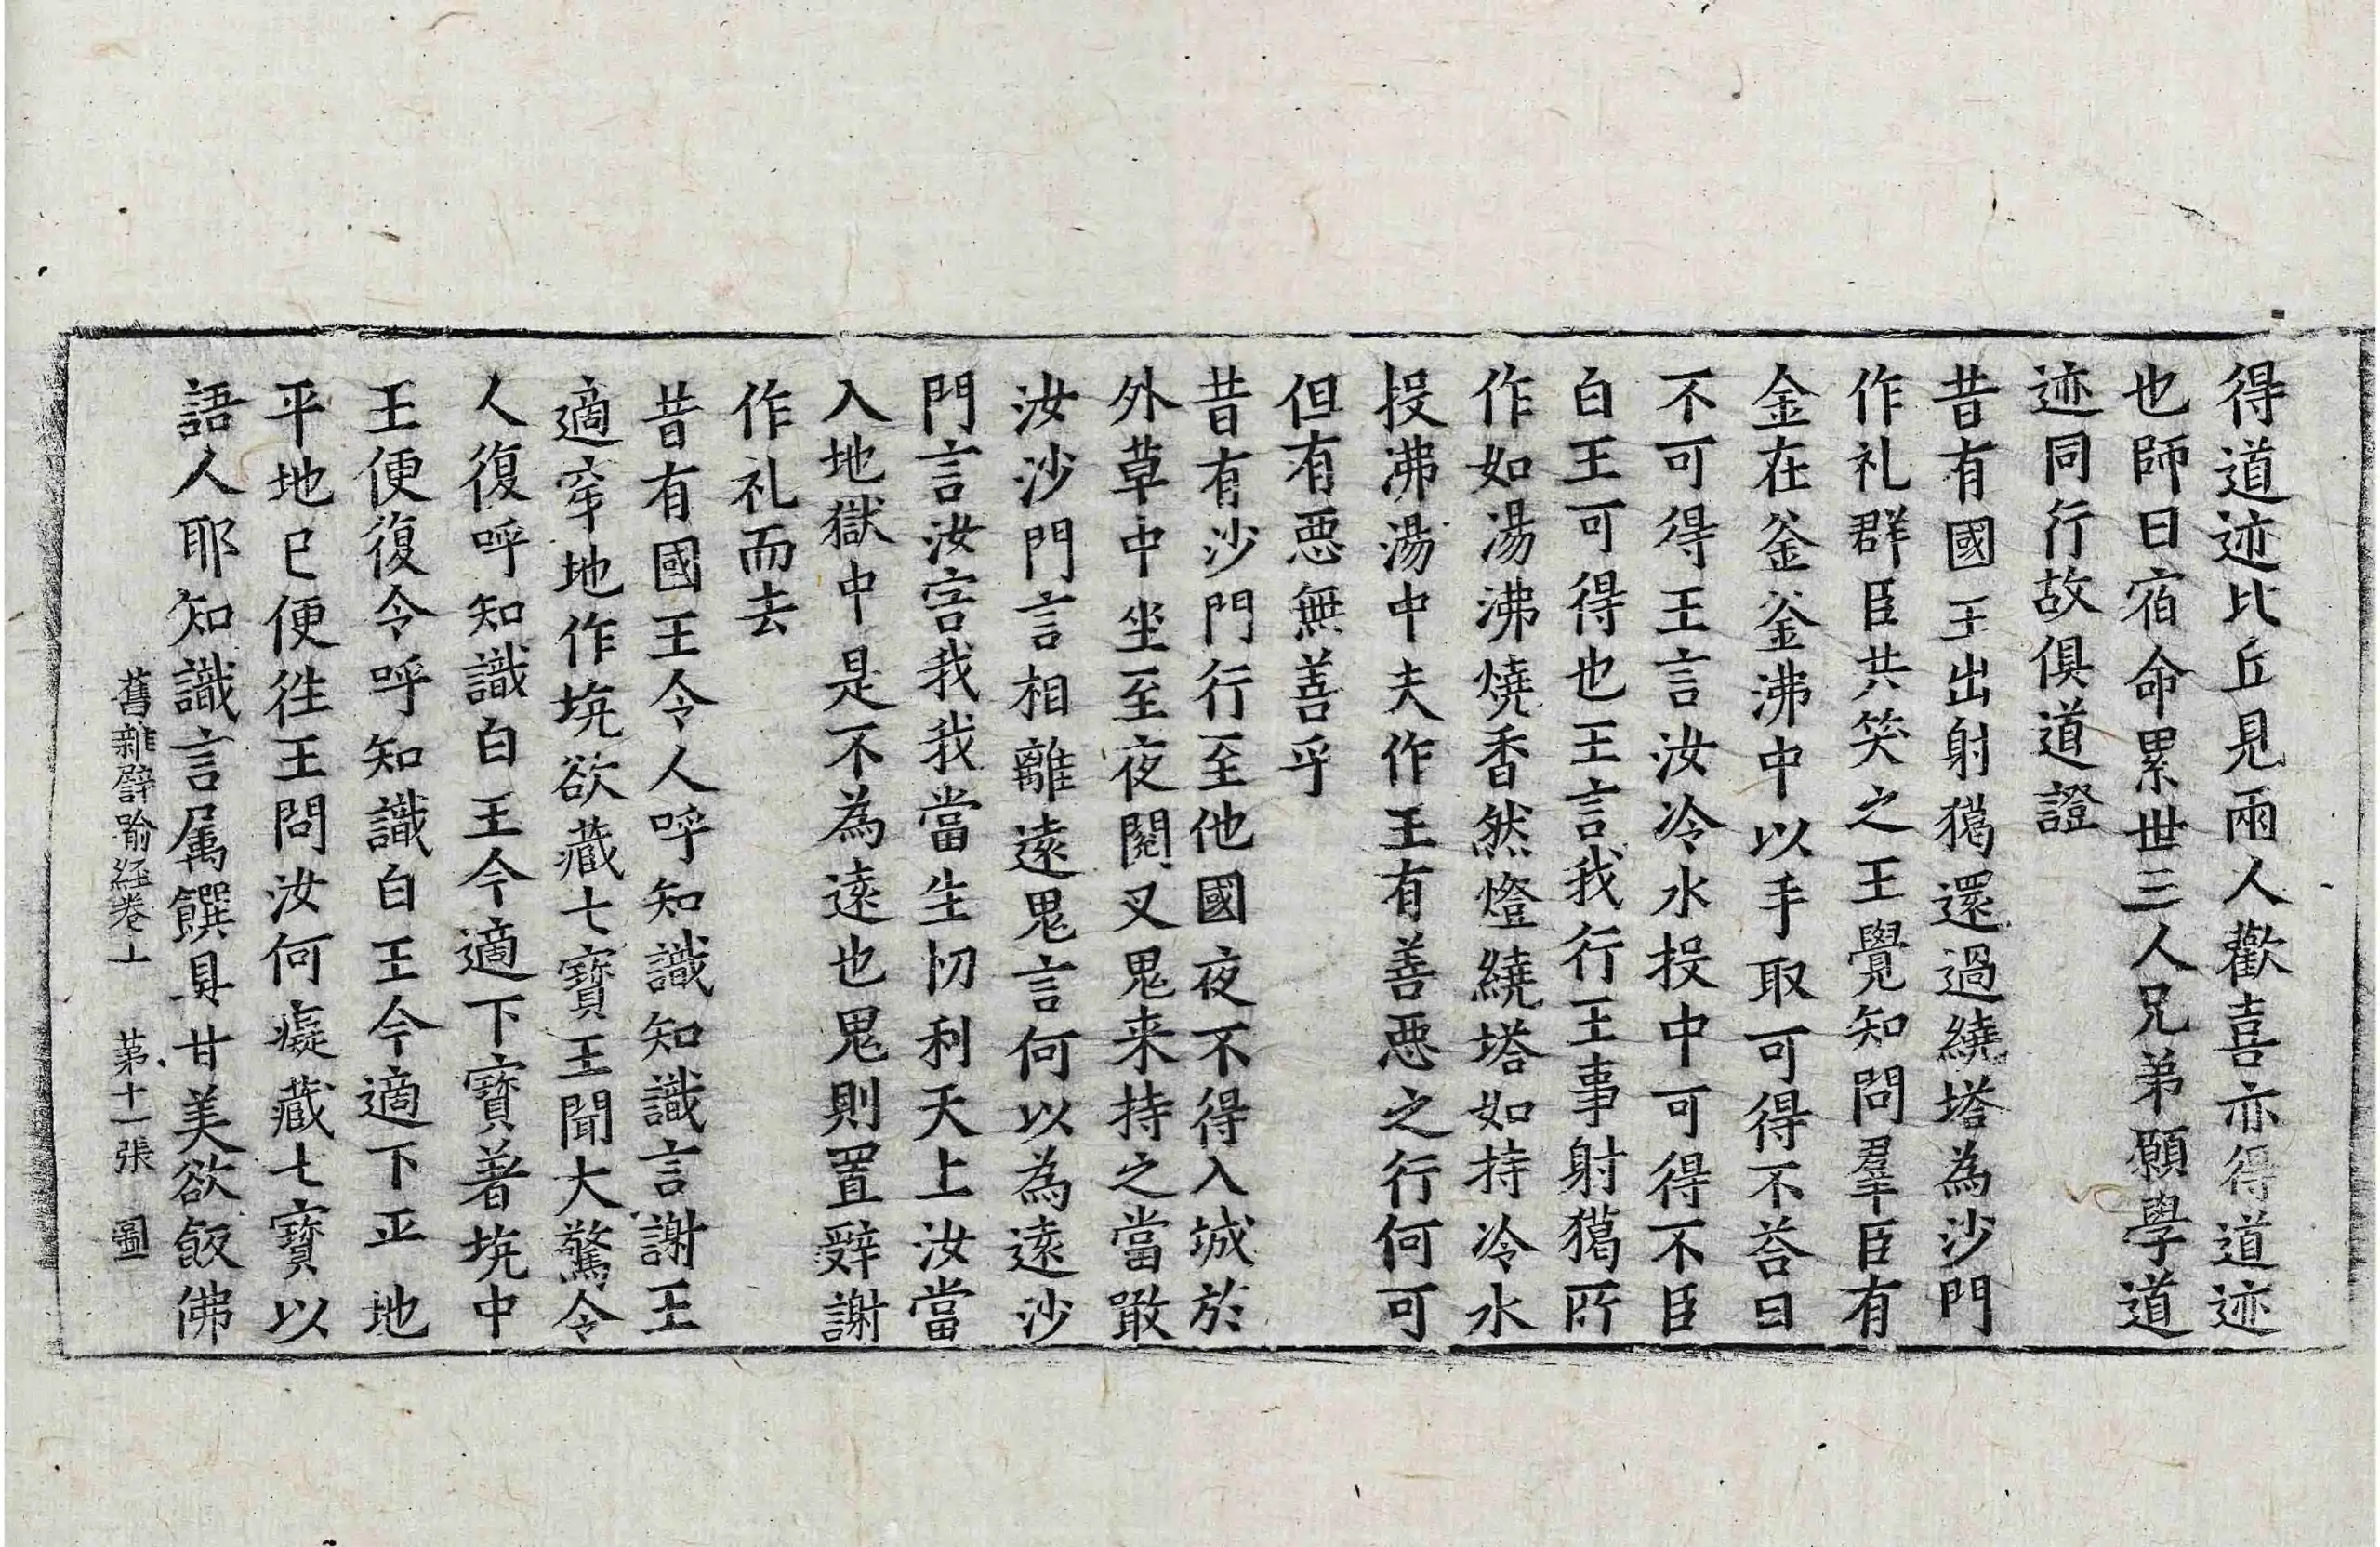 得道迹比丘見兩人歡喜亦得道迹
也師曰宿命累世三人兄弟願學道
迹同行故俱道證
昔有國王出射獦還過繞塔為沙門
作礼群臣共笑之王覺知問羣臣有
金在釜釜沸中以手取可得不荅曰
不可得王言汝冷水投中可得不臣
白王可得也王言我行王事射獦所
作如湯沸燒香然燈繞塔如持冷水
投沸湯中夫作王有善惡之行何可
但有惡無善乎
昔有沙門行至他國夜不得入城於
外草中坐至夜閱叉鬼来持之當噉
汝沙門言相離遠鬼言何以為遠沙
門言汝害我我當生忉利天上汝當
入地獄中是不為遠也鬼則置辤謝
作礼而去
昔有國王令人呼知識知識言謝王
適穿地作坑欲藏七寶王聞大驚令
人復呼知識白王今適下寶著坑中
王便復令呼知識白王今適下平地
平地已便往王問汝何癡藏七寶以
語人耶知識言属饌具甘美欲飯佛
舊雜譬喻経卷上 第十一張 圖